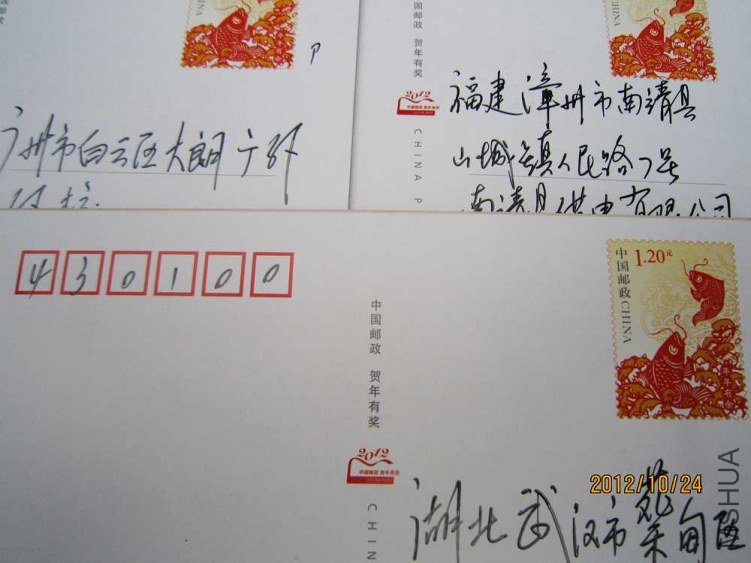 P
广州市白云区大朗
中国邮政 贺年有奖
2012
中国邮政 贺年有奖
CHINA P
福建漳州市南靖县
山城镇人民路
南靖县供电有限公司
430100
中国邮政 贺年有奖
2012
中国邮政 贺年有奖
CHIN
中国邮政 CHINA
1.20元
2012/10/24
湖北武汉市蔡甸区
SHUA